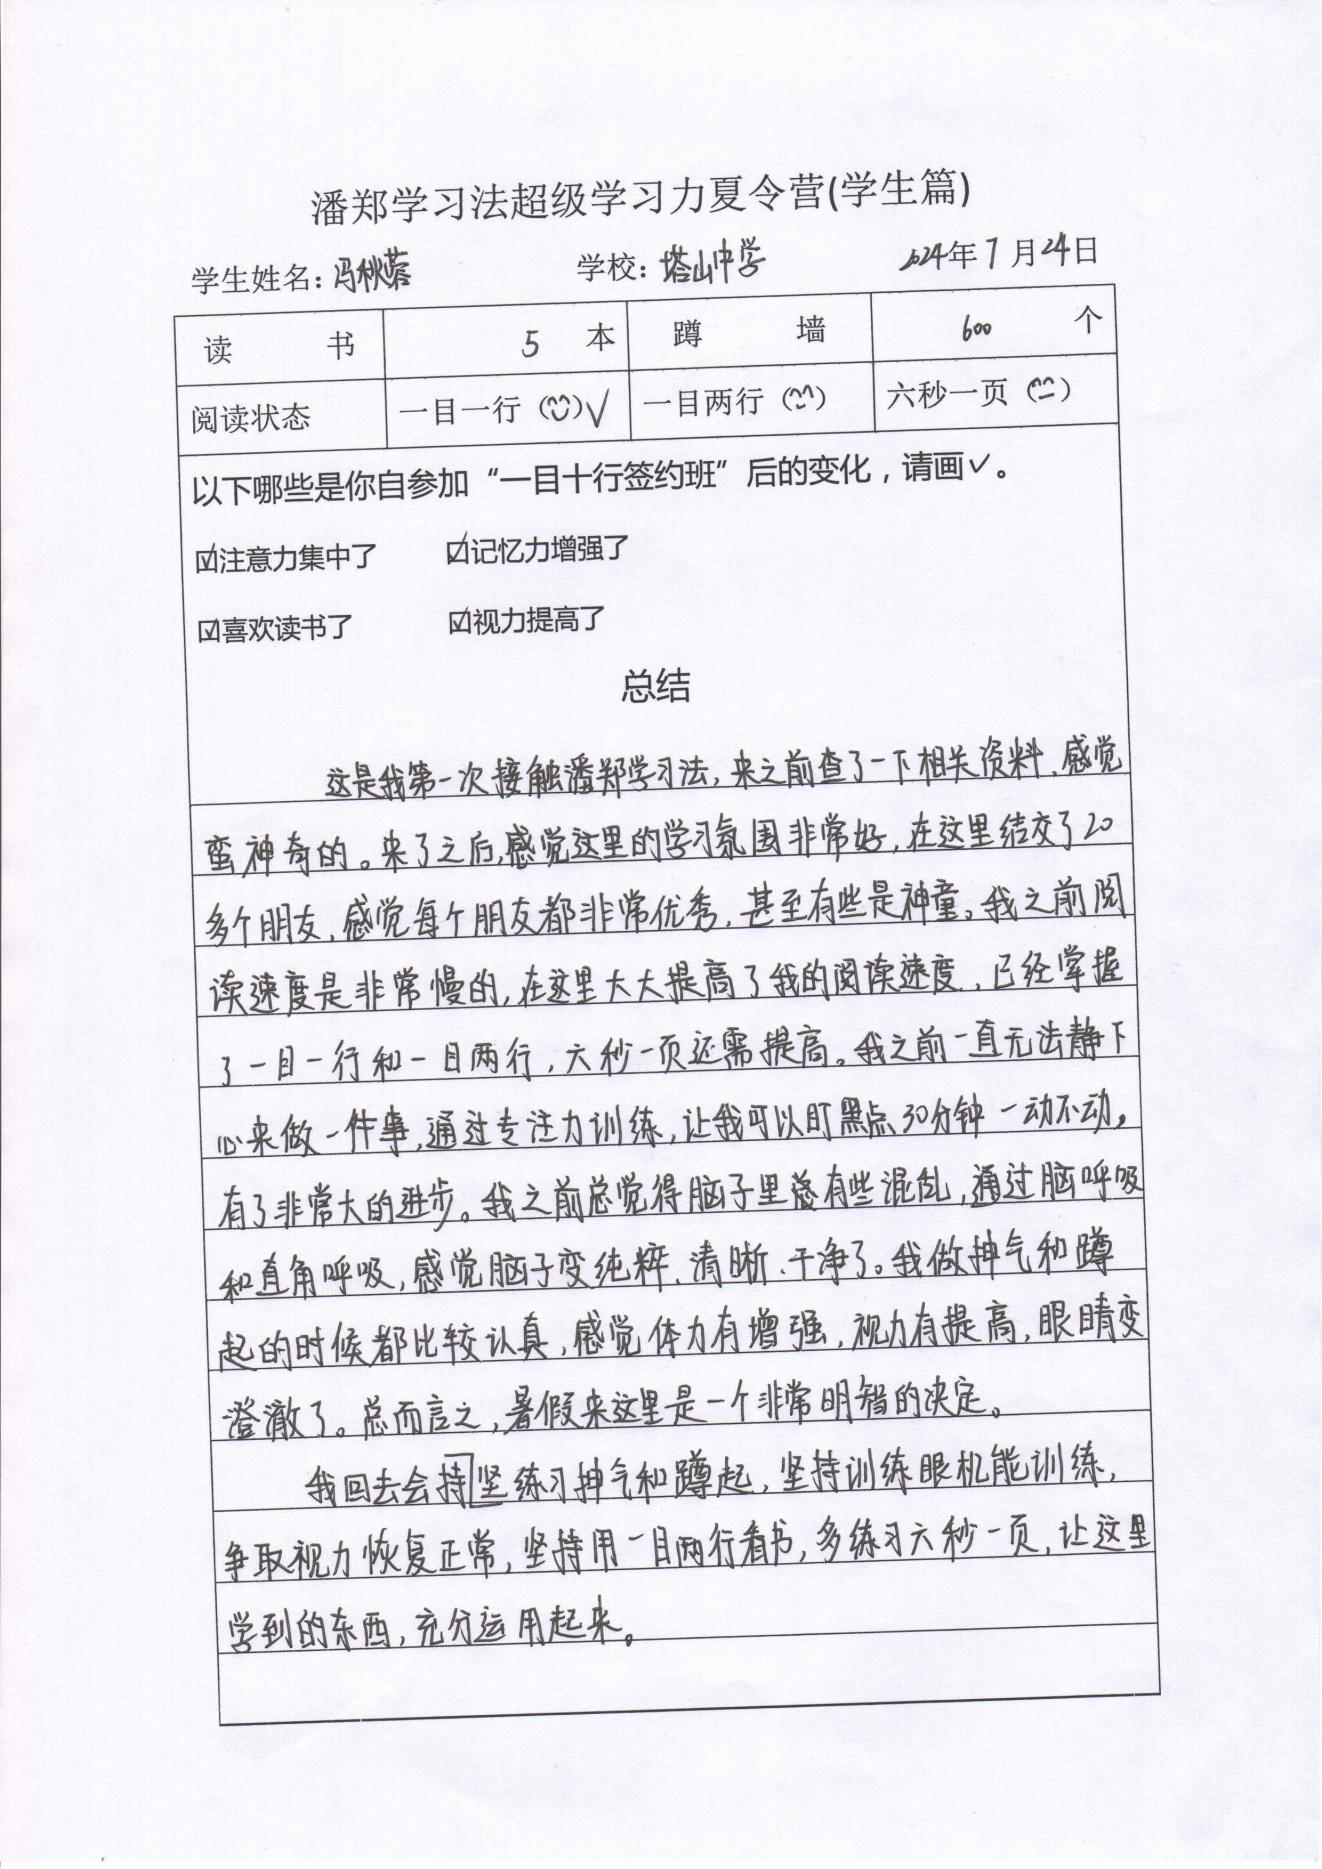 潘郑学习法超级学习力夏令营(学生篇)
学生姓名：冯秋蓉 学校：塔山中学 2024年7月24日
读书 5本 蹲墙 600个
阅读状态 一目一行（）√ 一目两行（） 六秒一页（）
以下哪些是你自参加“一目十行签约班”后的变化，请画✓。
☑注意力集中了 ☑记忆力增强了
☑喜欢读书了 ☑视力提高了
总结
这是我第一次接触潘郑学习法，来之前查了一下相关资料、感觉
蛮神奇的。来了之后，感觉这里的学习氛围非常好，在这里结交了20
多个朋友，感觉每个朋友都非常优秀，甚至有些是神童。我之前阅
读速度是非常慢的，在这里大大提高了我的阅读速度，已经掌握
了一目一行和一目两行，六秒一页还需提高。我之前一直无法静下
心来做一件事，通过专注力训练，让我可以盯黑点30分钟一动不动，
有了非常大的进步。我之前总觉得脑子里总有些混乱，通过脑呼吸
和直角呼吸，感觉脑子变纯粹、清晰、干净了。我做抻气和蹲
起的时候都比较认真，感觉体力有增强，视力有提高，眼睛变
澄澈了。总而言之，暑假来这里是一个非常明智的决定。
我回去会持坚练习抻气和蹲起，坚持训练眼机能训练，
争取视力恢复正常，坚持用一目两行看书，多练习六秒一页，让这里
学到的东西，充分运用起来。